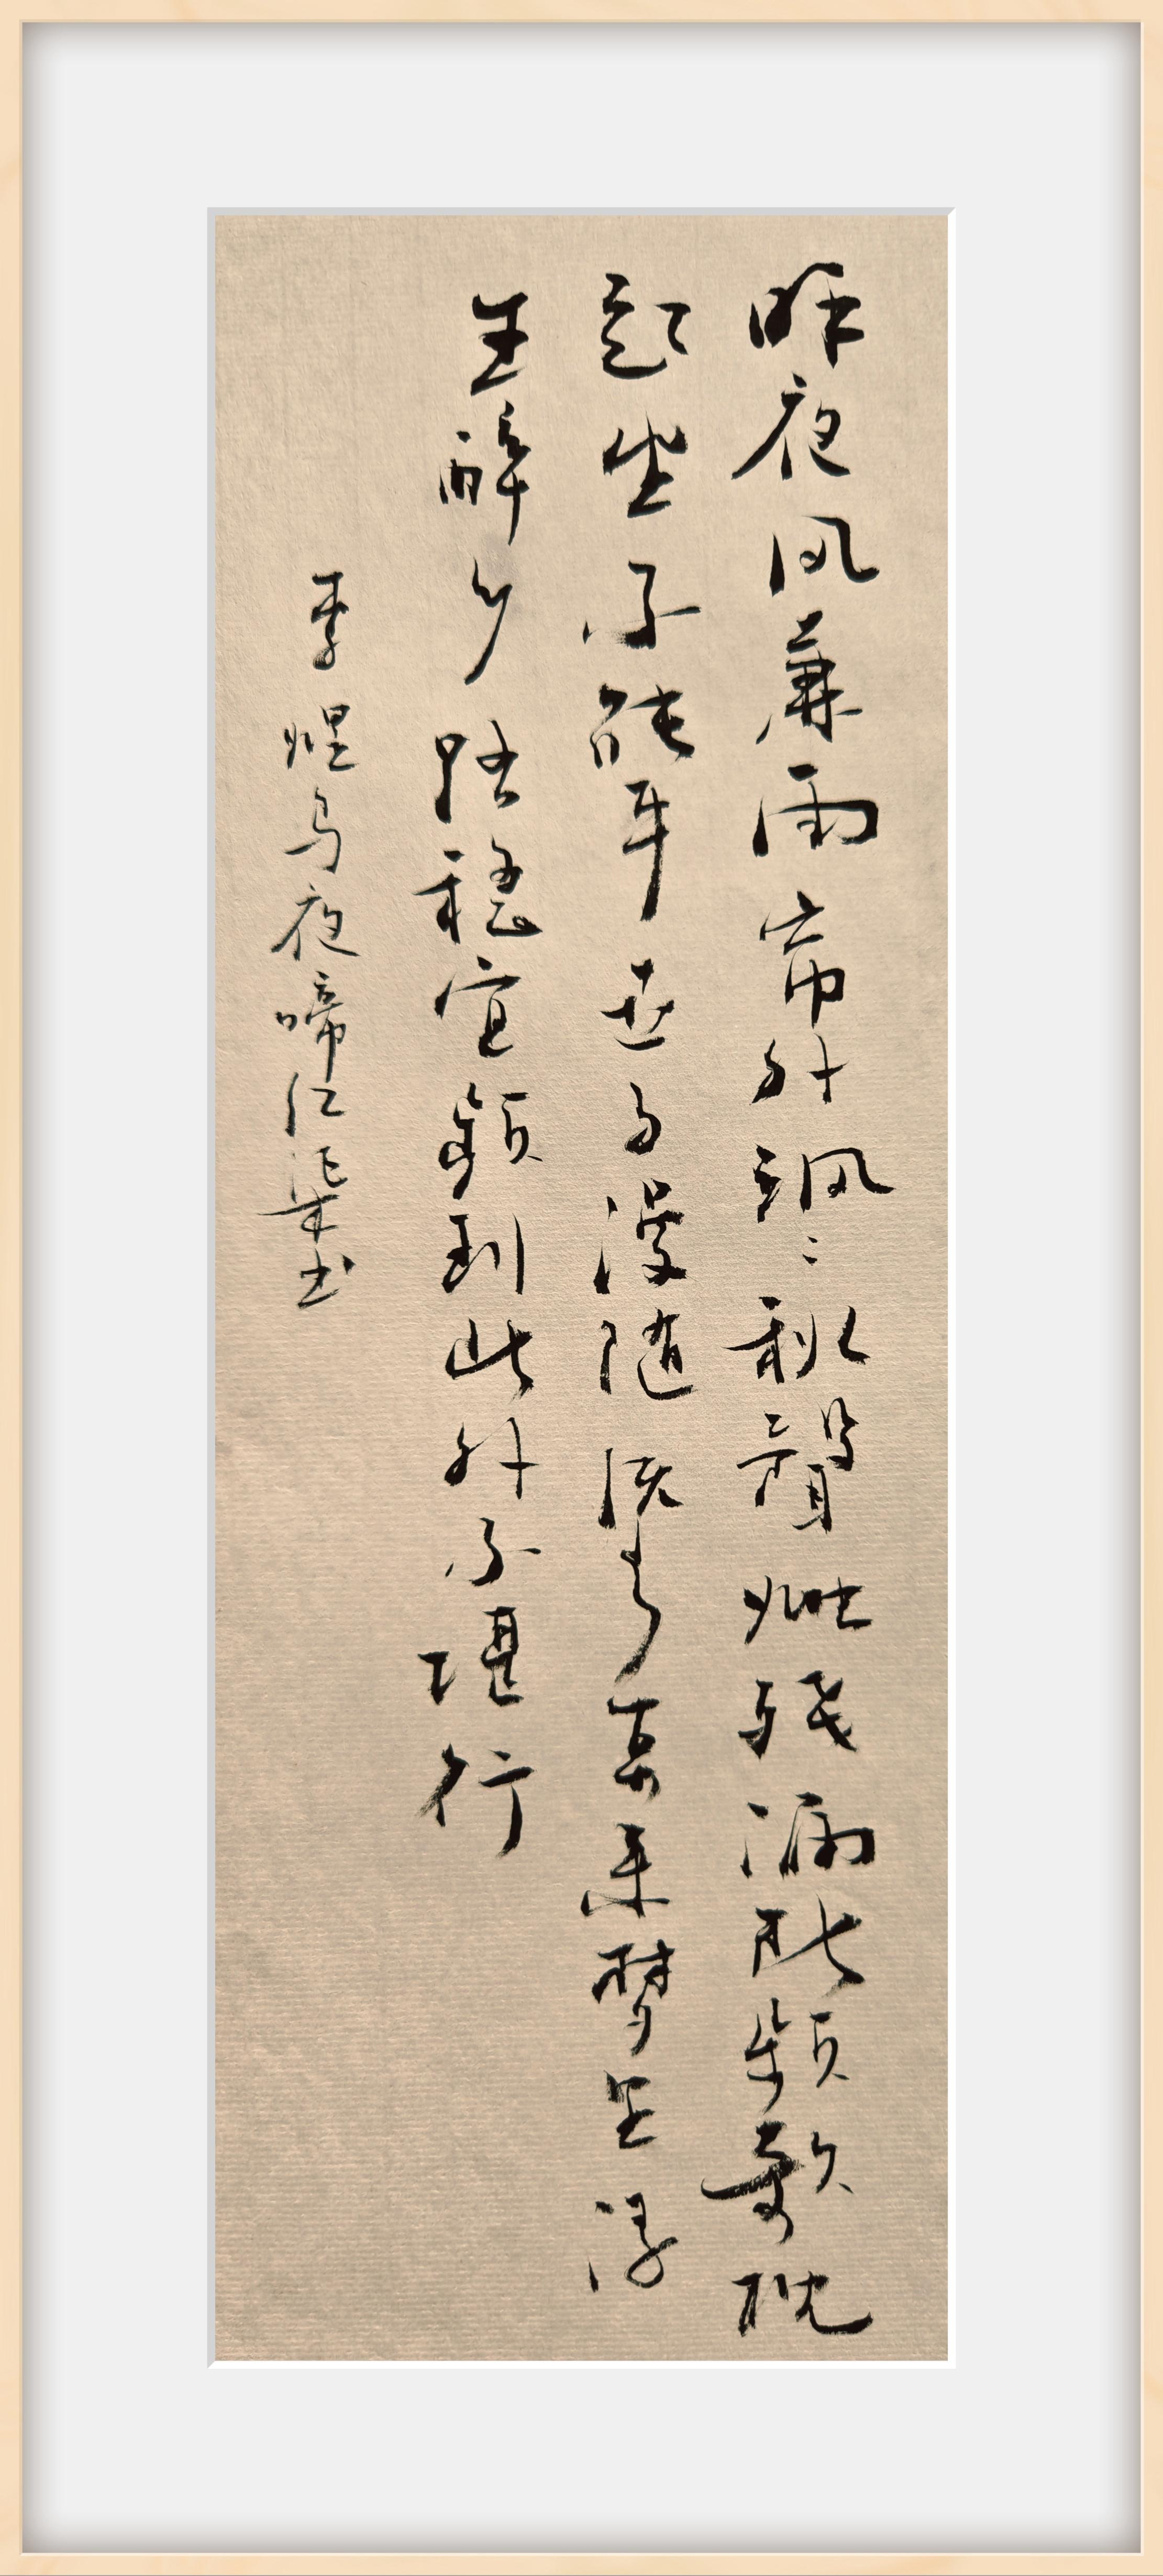 昨夜风兼雨帘外飒〻秋聲烛残漏断频欹枕
起坐不能平世事漫随流水算来梦里浮
生醉乡路稳宜频到此外不堪行
李煜乌夜啼仁柒书